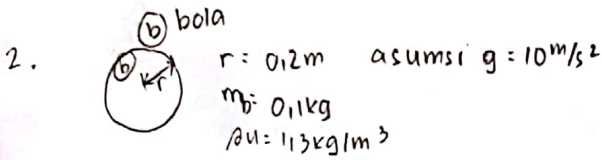 b bola
2. b r r : 0,2m asumsi g = 10 m/s²
mb = 0,1kg
ρu = 1,3 kg/m³